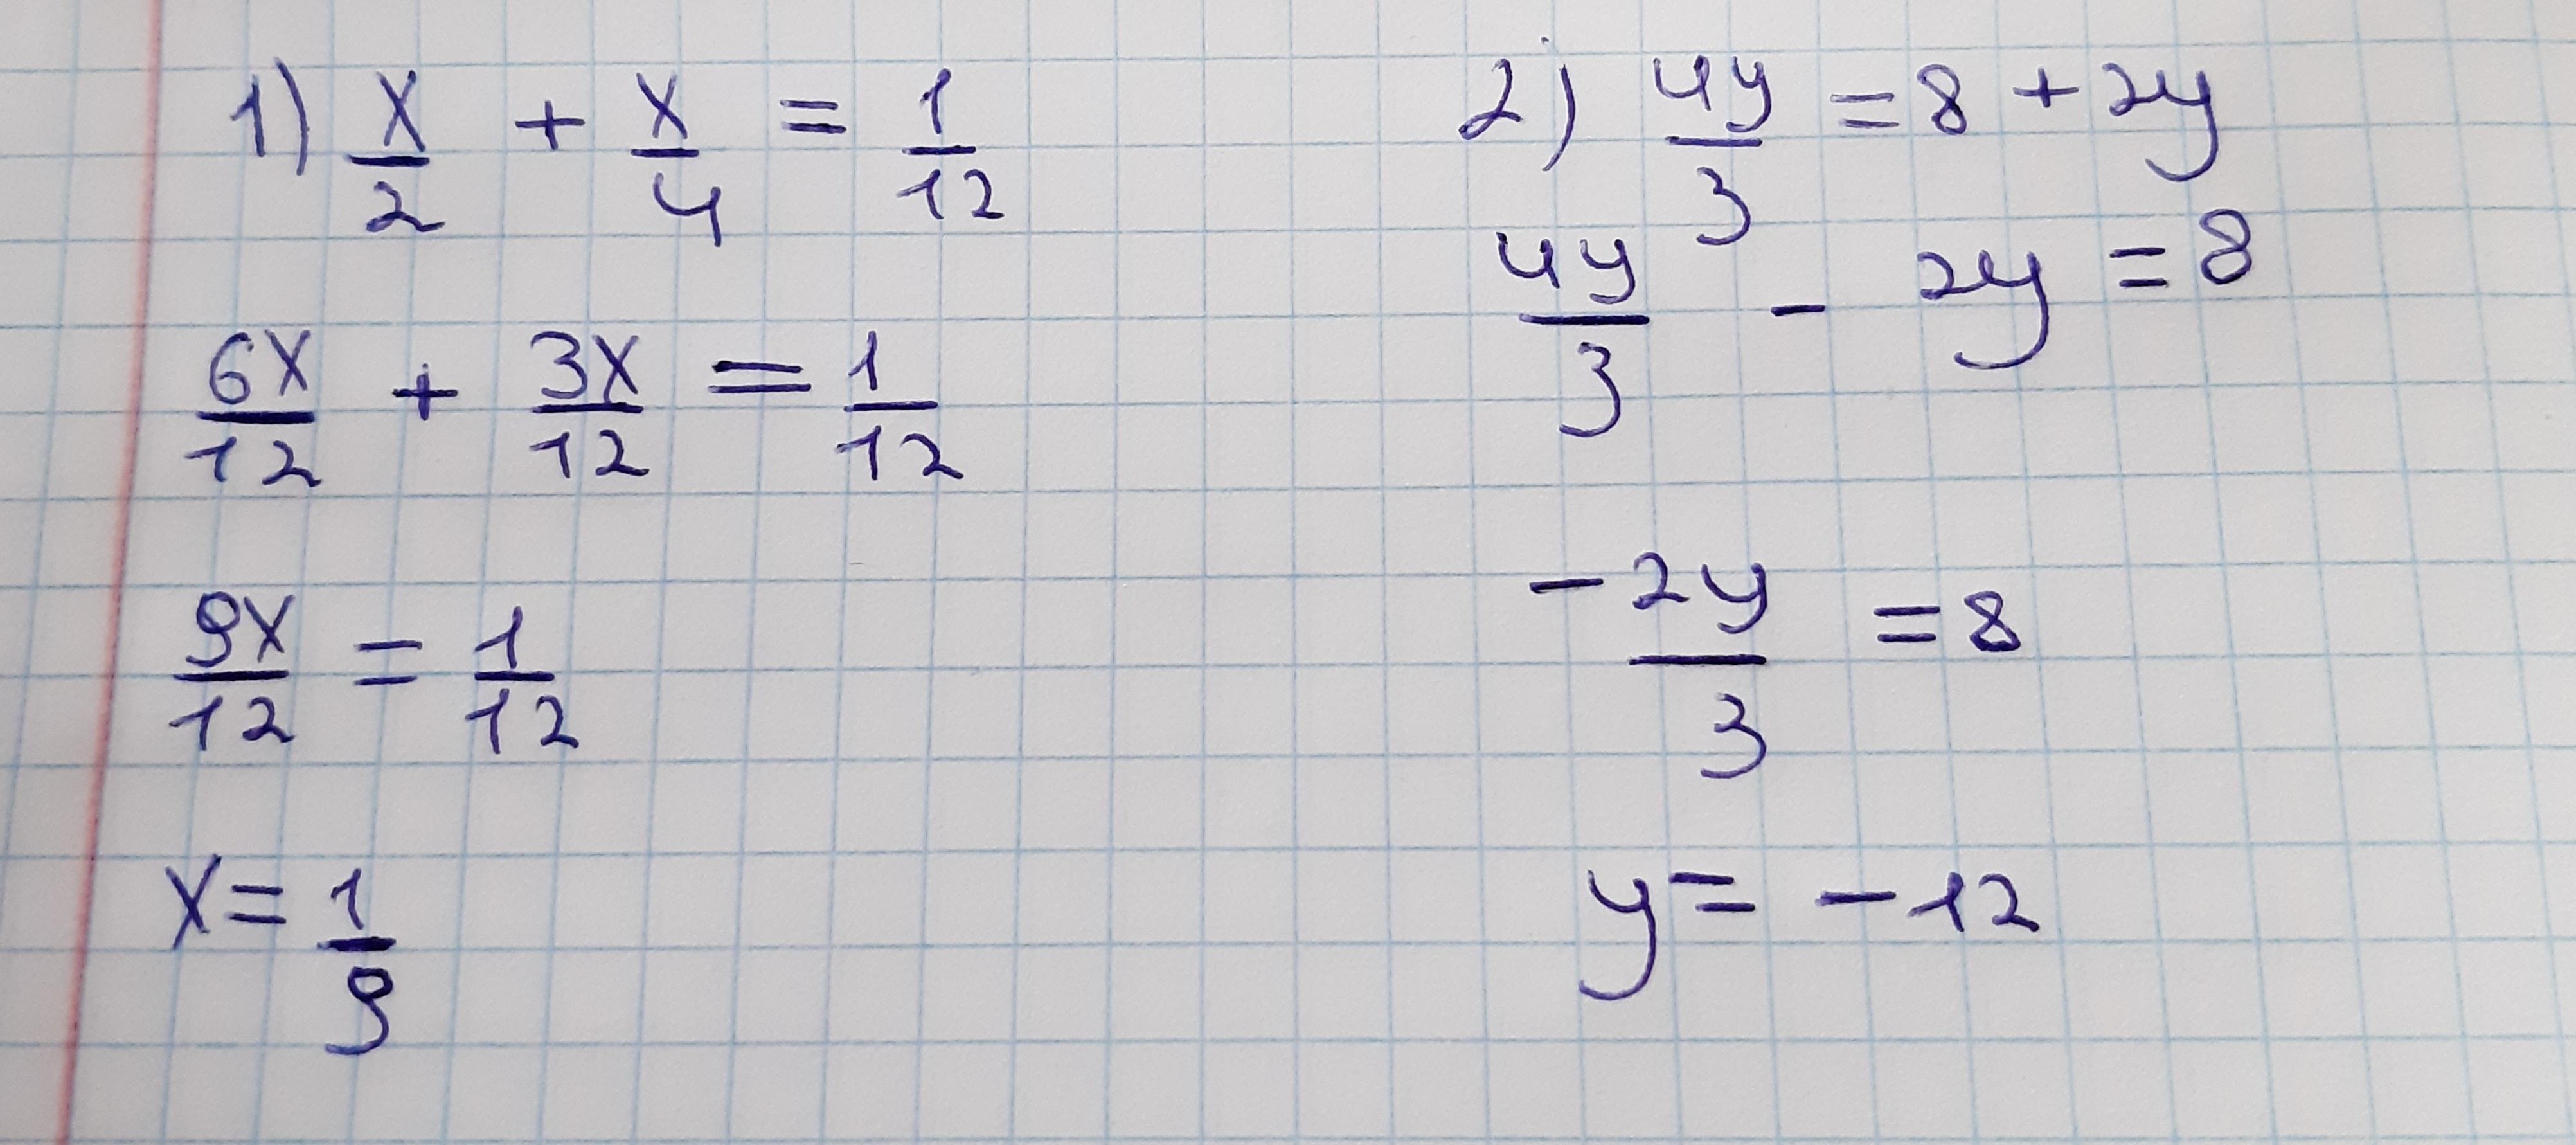 1) x/2 + x/4 = 1/12
6x/12 + 3x/12 = 1/12
9x/12 = 1/12
x = 1/9
2) 4y/3 = 8 + 2y
4y/3 - 2y = 8
-2y/3 = 8
y = -12